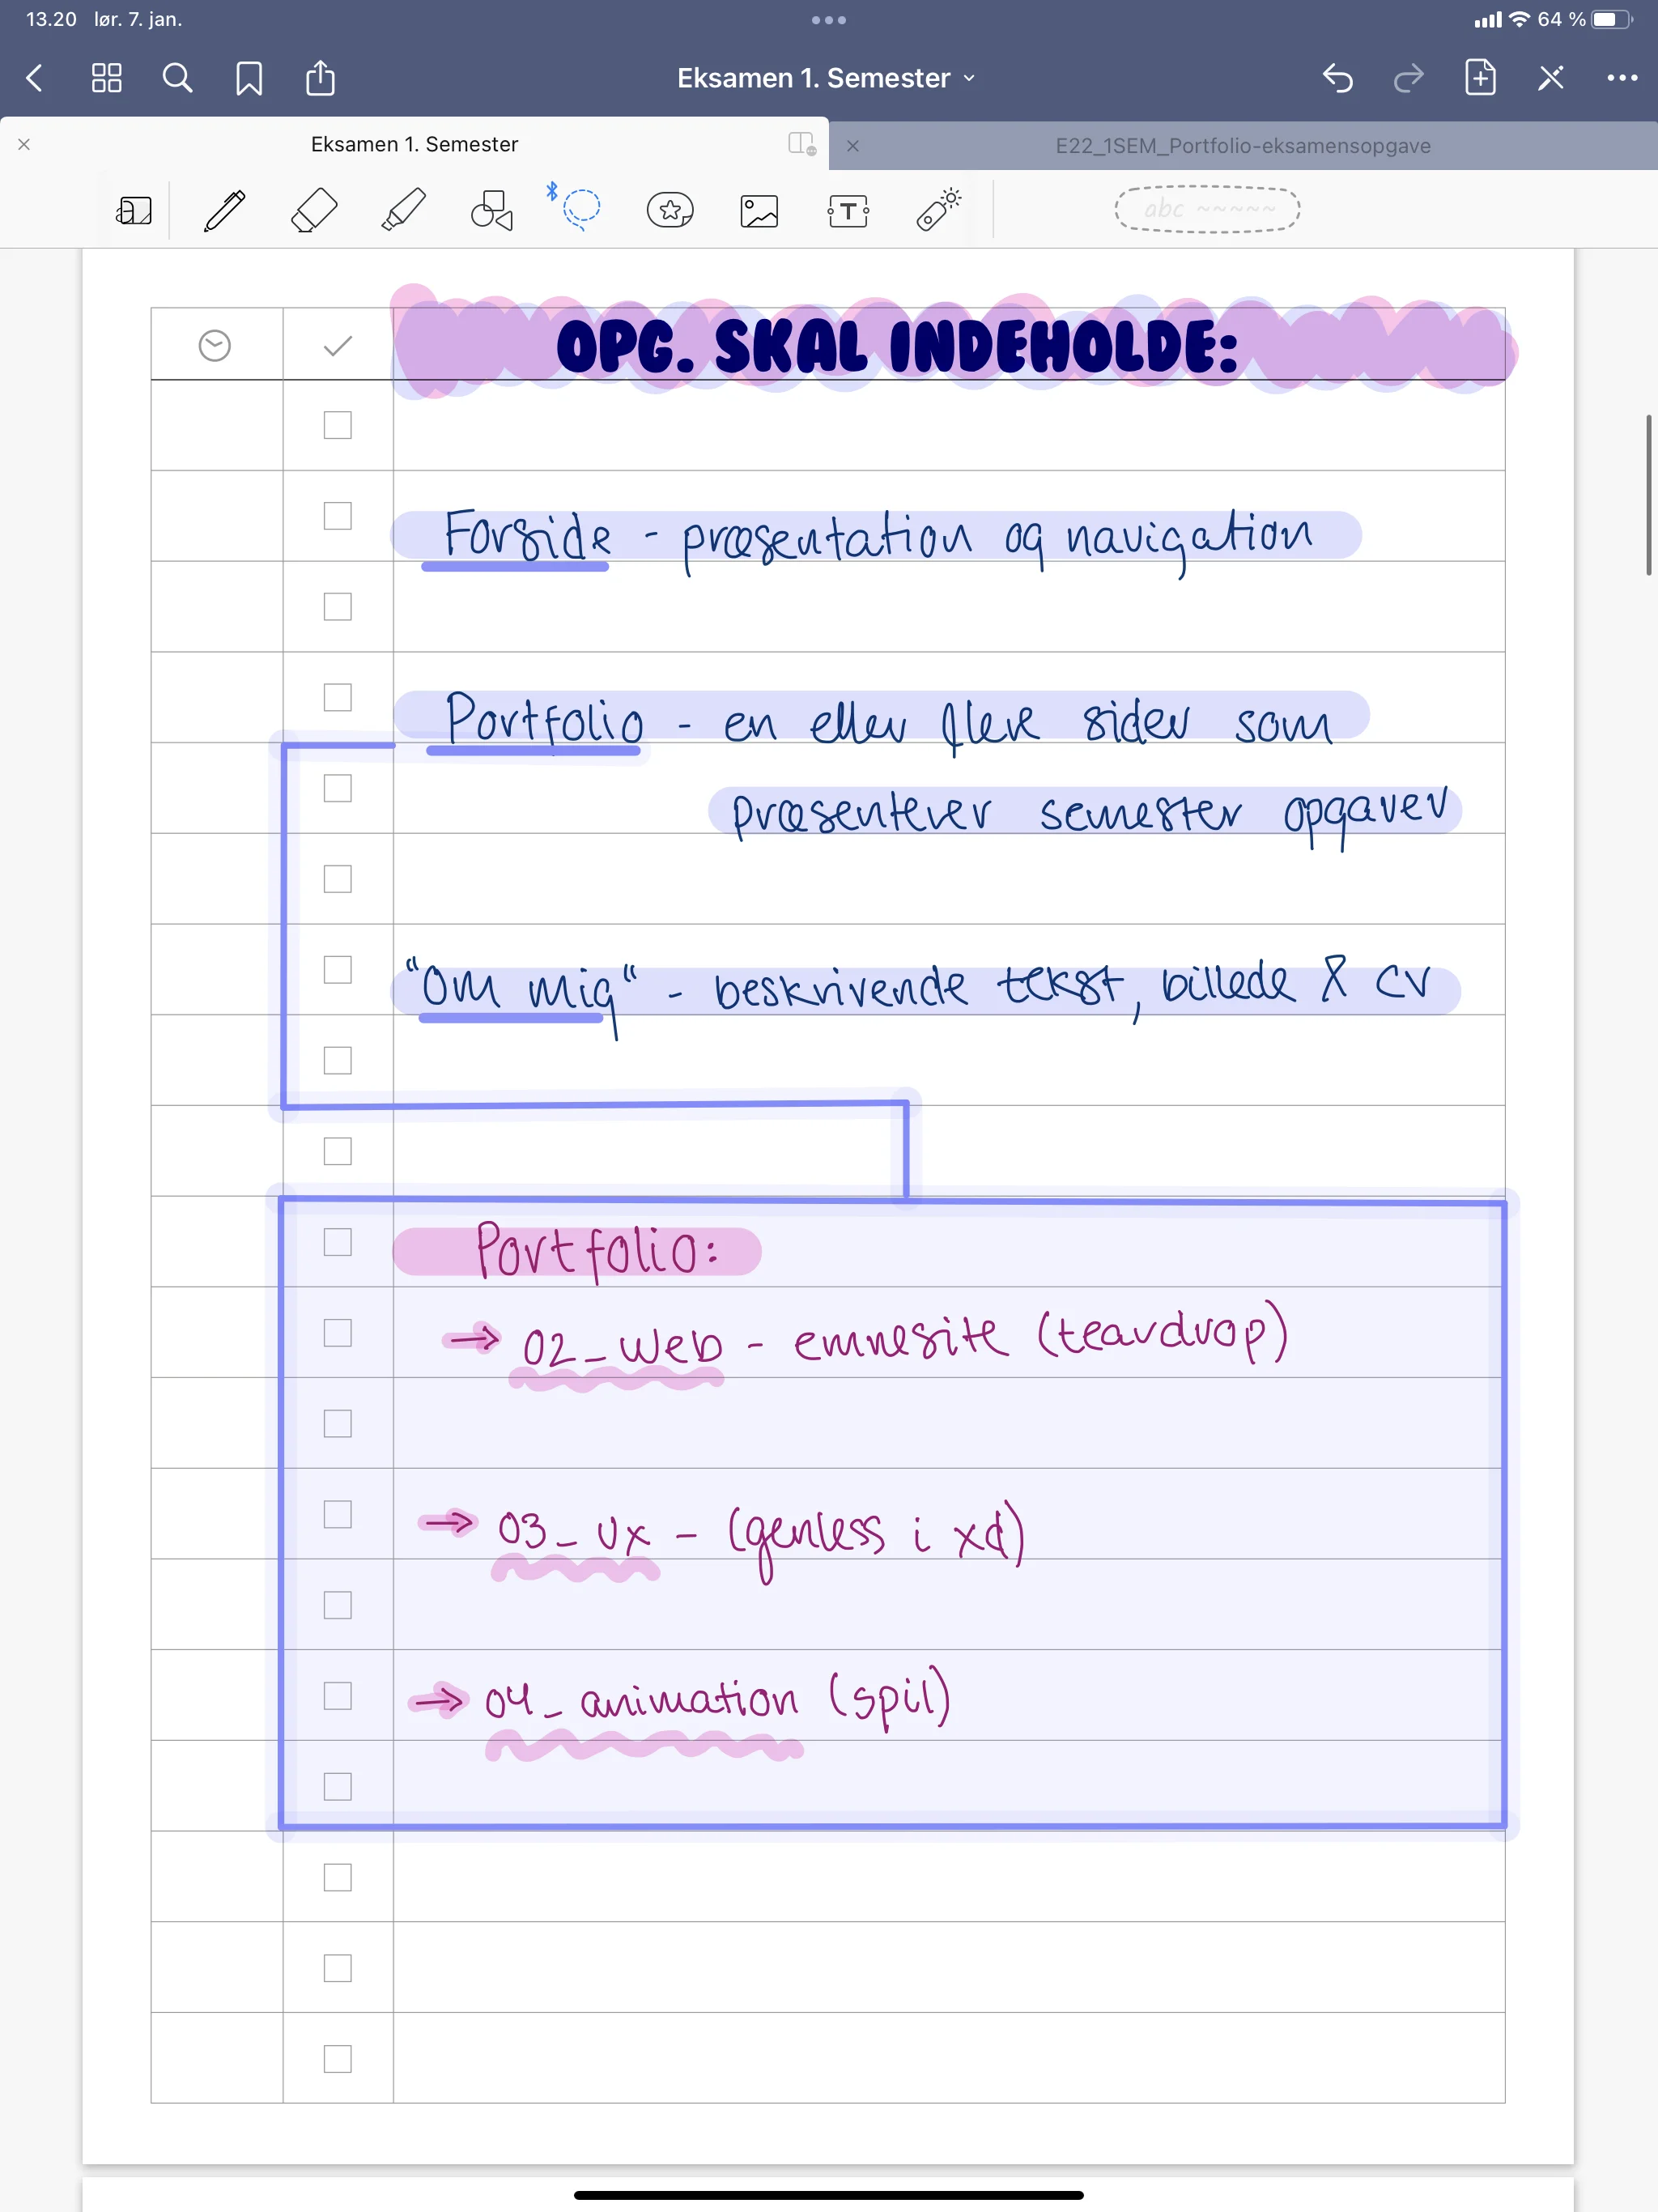 13.20 lør. 7. jan.
64 %
Eksamen 1. Semester
Eksamen 1. Semester
E22_1SEM_Portfolio-eksamensopgave
T
abc
OPG. SKAL INDEHOLDE:
Forside - præsentation og navigation
Portfolio - en eller flere sider som
præsenterer semester opgaver
"Om mig" - beskrivende tekst, billede & CV
Portfolio:
→ 02_web - emnesite (teardrop)
→ 03_UX - (genless i xd)
→ 04_animation (spil)